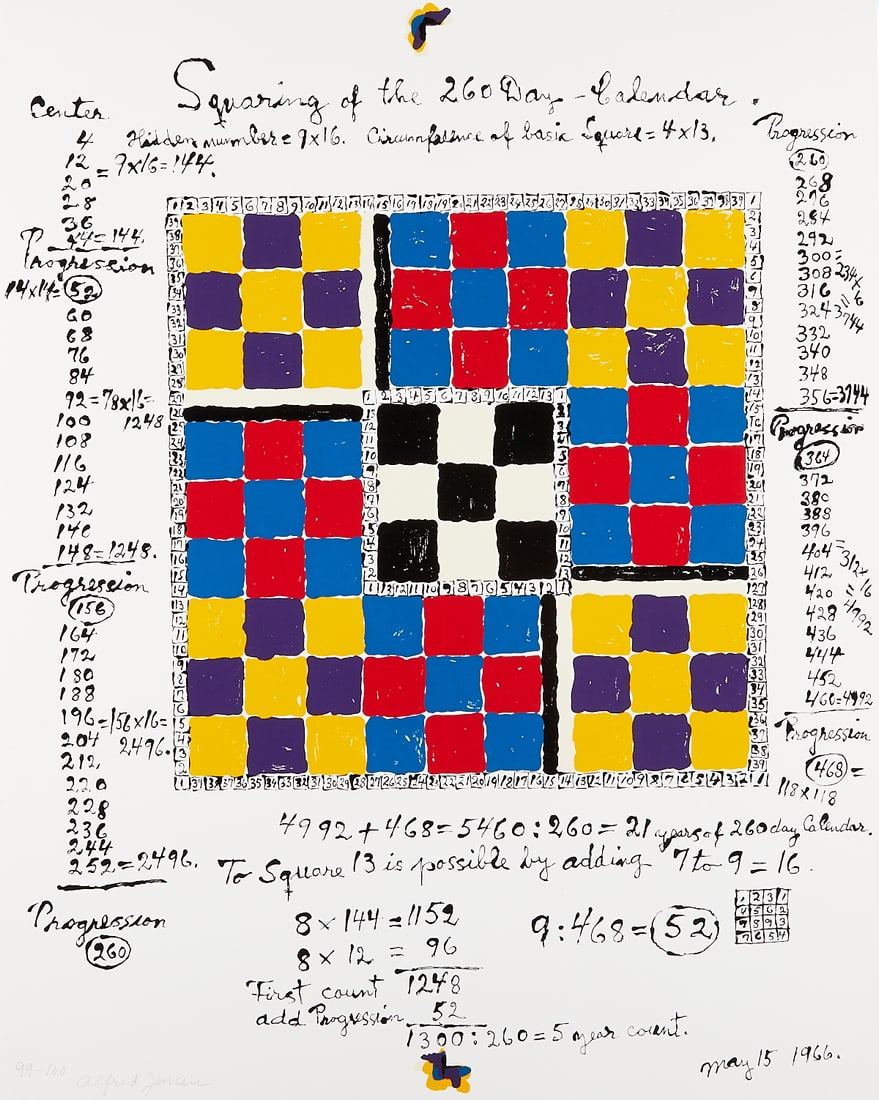 Squaring of the 260 Day - Calendar.
Hidden number = 9x16. Circumference of basic Square = 4x13.
Center
4
12
20 = 9x16=144.
28
36
44=144.
Progression
14x14= 52
60
68
76
84
92=78x16=
100 1248
108
116
124
132
140
148=1248.
Progression
156
164
172
180
188
196=156x16=
204 2496.
212
220
228
236
244
252=2496.
Progression
260
Progression
260
268
276
284
292
300=
308 234x
316 16
324 3744
332
340
348
356=3744
Progression
364
372
380
388
396
404=
412 312x
420 =16
428 4992
436
444
452
460=4992
Progression
468 =
118x118
1 2 3 4 5 6 7 8 9 10 11 12 13 1
4992+468=5460:260=21 years of 260 day Calendar.
To Square 13 is possible by adding 7 to 9=16.
8x144=1152
8x12 = 96
First count 1248
add Progression 52
1300:260=5 year count.
9:468= 52
1 2 3 1
4 5 6 2
7 8 9 3
7 6 5 4
May 15 1966.
99-100 Alfred Jensen